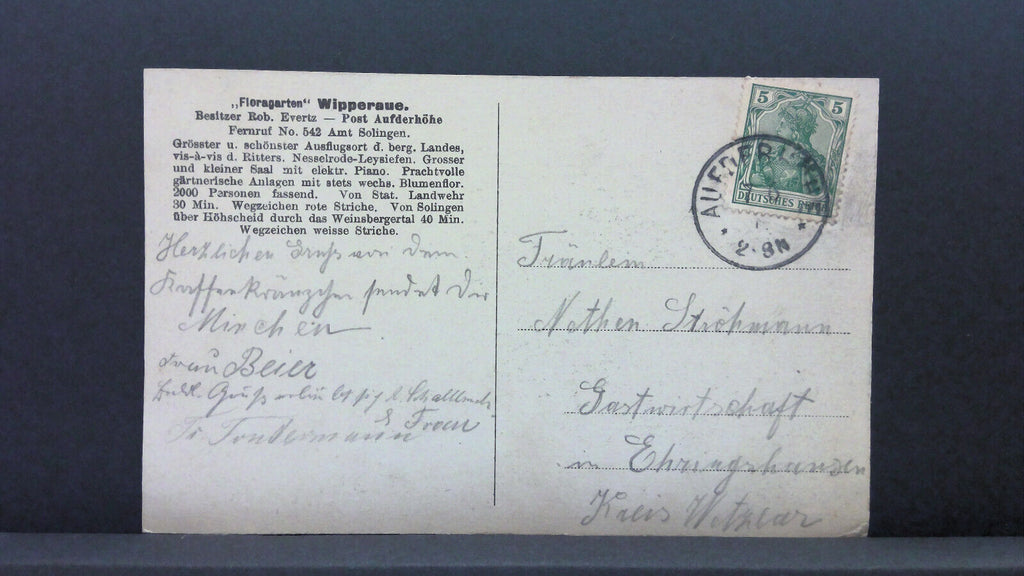 „Floragarten" Wipperaue.
Besitzer Rob. Evertz — Post Aufderhöhe
Fernruf No. 542 Amt Solingen.
Grösster u. schönster Ausflugsort d. berg. Landes,
vis-à-vis d. Ritters. Nesselrode-Leysiefen. Grosser
und kleiner Saal mit elektr. Piano. Prachtvolle
gärtnerische Anlagen mit stets wechs. Blumenflor.
2000 Personen fassend. Von Stat. Landwehr
30 Min. Wegzeichen rote Striche. Von Solingen
über Höhscheid durch das Weinsbergertal 40 Min.
Wegzeichen weisse Striche.
Herzlichen Gruß von dem
Kaffeekränzchen sendet Dir
Minchen
Frau Beier
Gruß
Frau
Fr. Tondermann
5 5
DEUTSCHES
AUFDERHÖHE
2-3N
Fräulein
Nethen Ströhmann
Gastwirtschaft
in Ehringshausen
Kreis Wetzlar